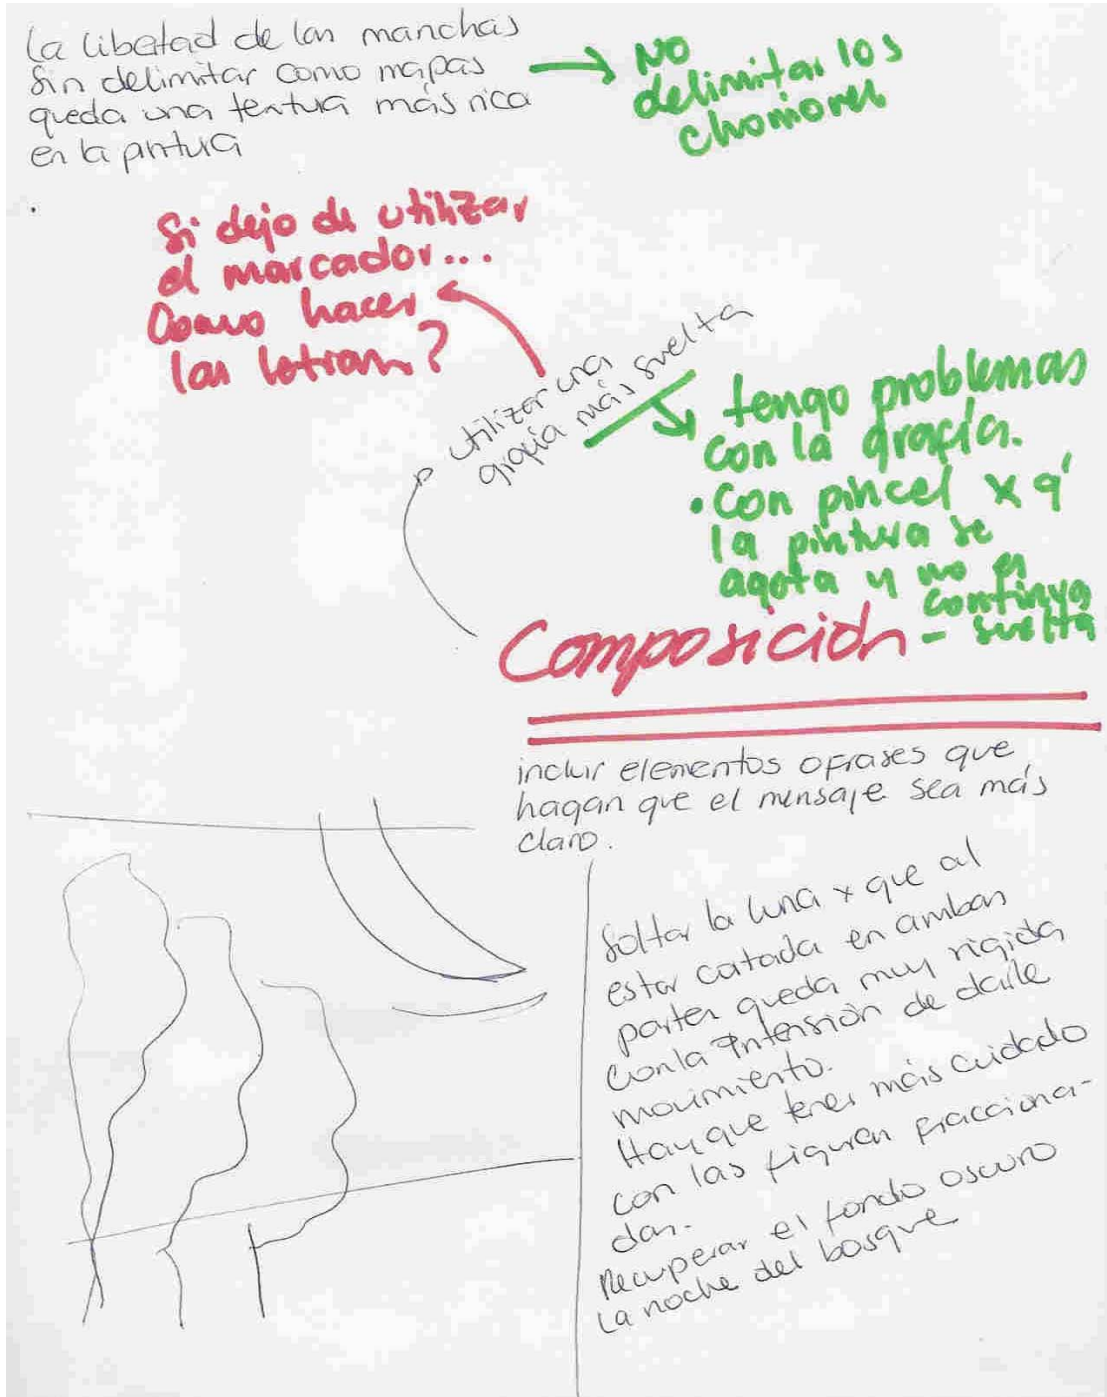 La libertad de las manchas
sin delimitar como mapas
queda una textura más rica
en la pintura
No
delimitar los
chorriores
Si dejo de utilizar
el marcador...
Como hacer
las letras?
utilizar una
grafía más suelta
tengo problemas
con la grafía.
• Con pincel x q'
la pintura se
agota y no es
continua
- suelta
Composición
incluir elementos o frases que
hagan que el mensaje sea más
claro.
Soltar la luna x que al
estar cortada en ambas
partes queda muy rigida
con la intensión de darle
movimiento.
Hay que tener más cuidado
con las figuras fracciona-
das.
Recuperar el fondo oscuro
La noche del bosque